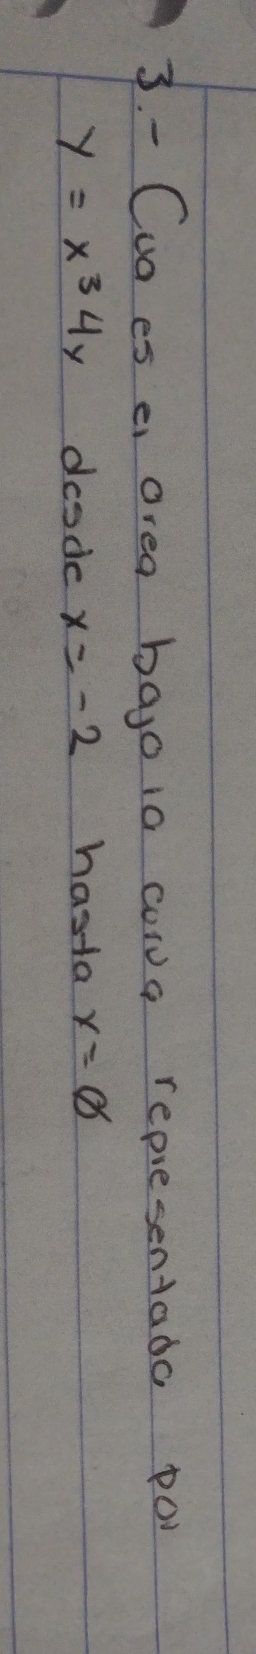 3.- Cua es el area bajo la curva representada por
y = x³4y desde x = -2 hasta x = 0